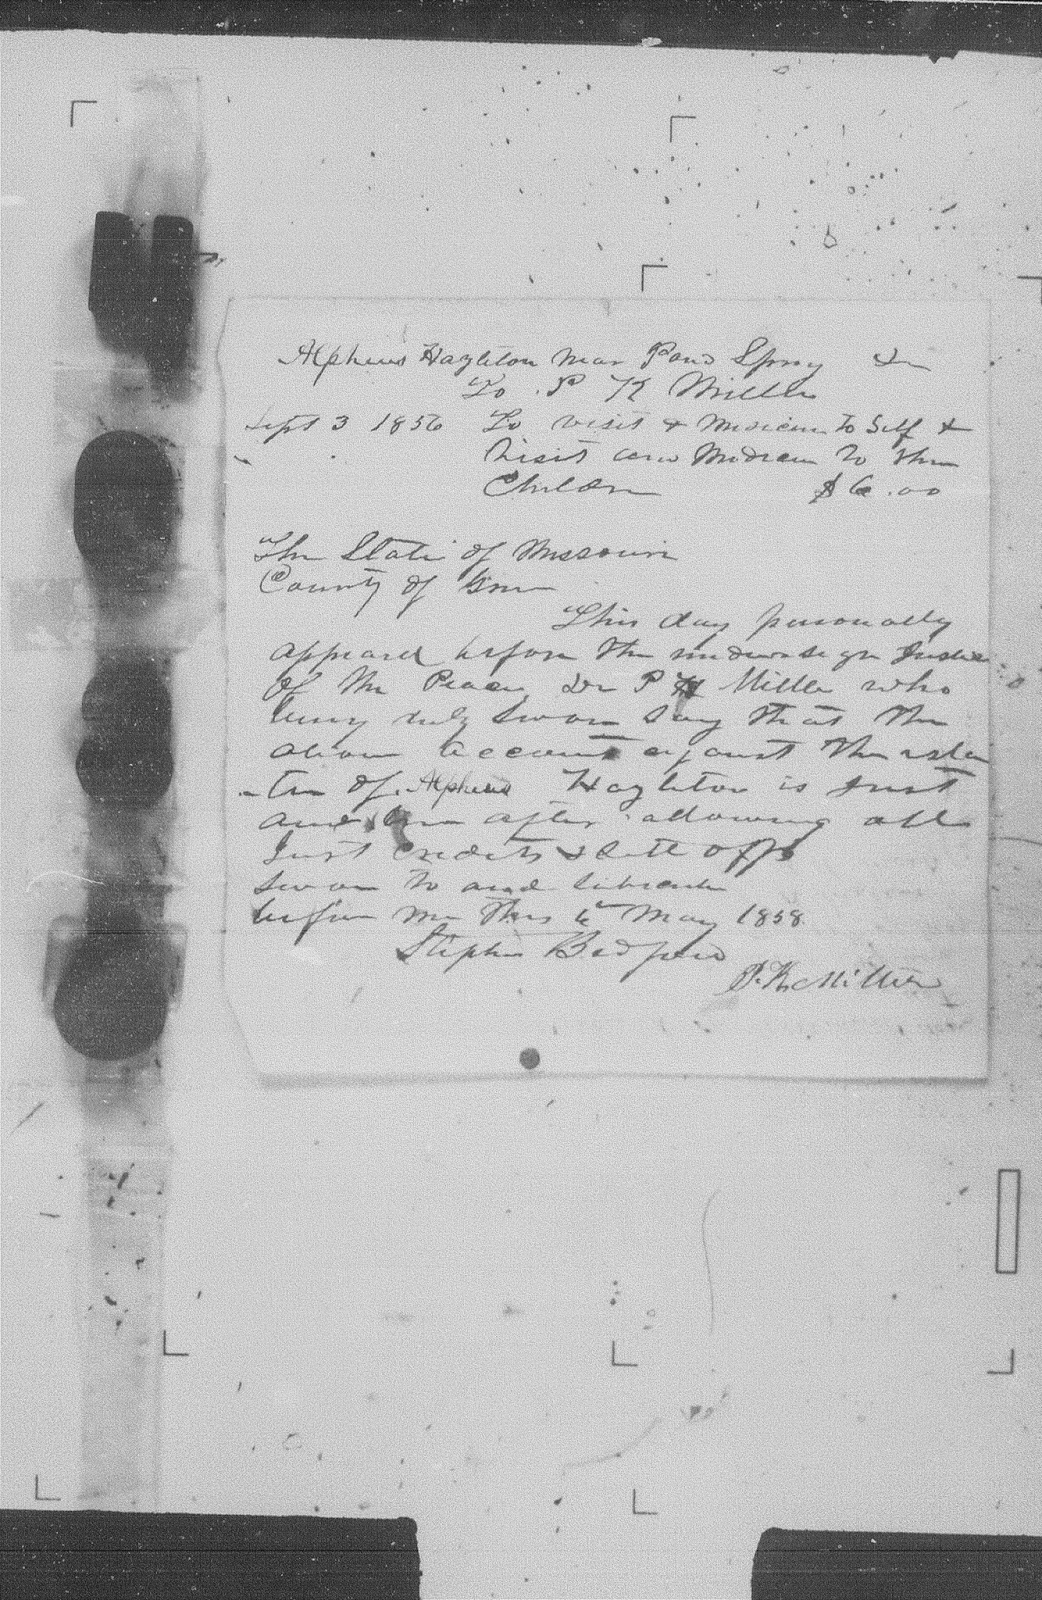 Alpheus Hazleton near Pond Spring Dr
To P K Miller
Sept 3 1856 To visit & Medicin to Self &
Visit and Medicin to three
Children $6.00
The State of Missouri
County of Green
This day personally
appeard before the undersign Justice
of the Peace, Dr P K Miller who
being duly Sworn Say that the
above account against the esta
te of Alpheus Hazleton is Just
and due after allowing all
Just credits & Sett offs
Sworn to and subscribe
before me this 6th May 1858
Stephen Bedford
P. K. Miller